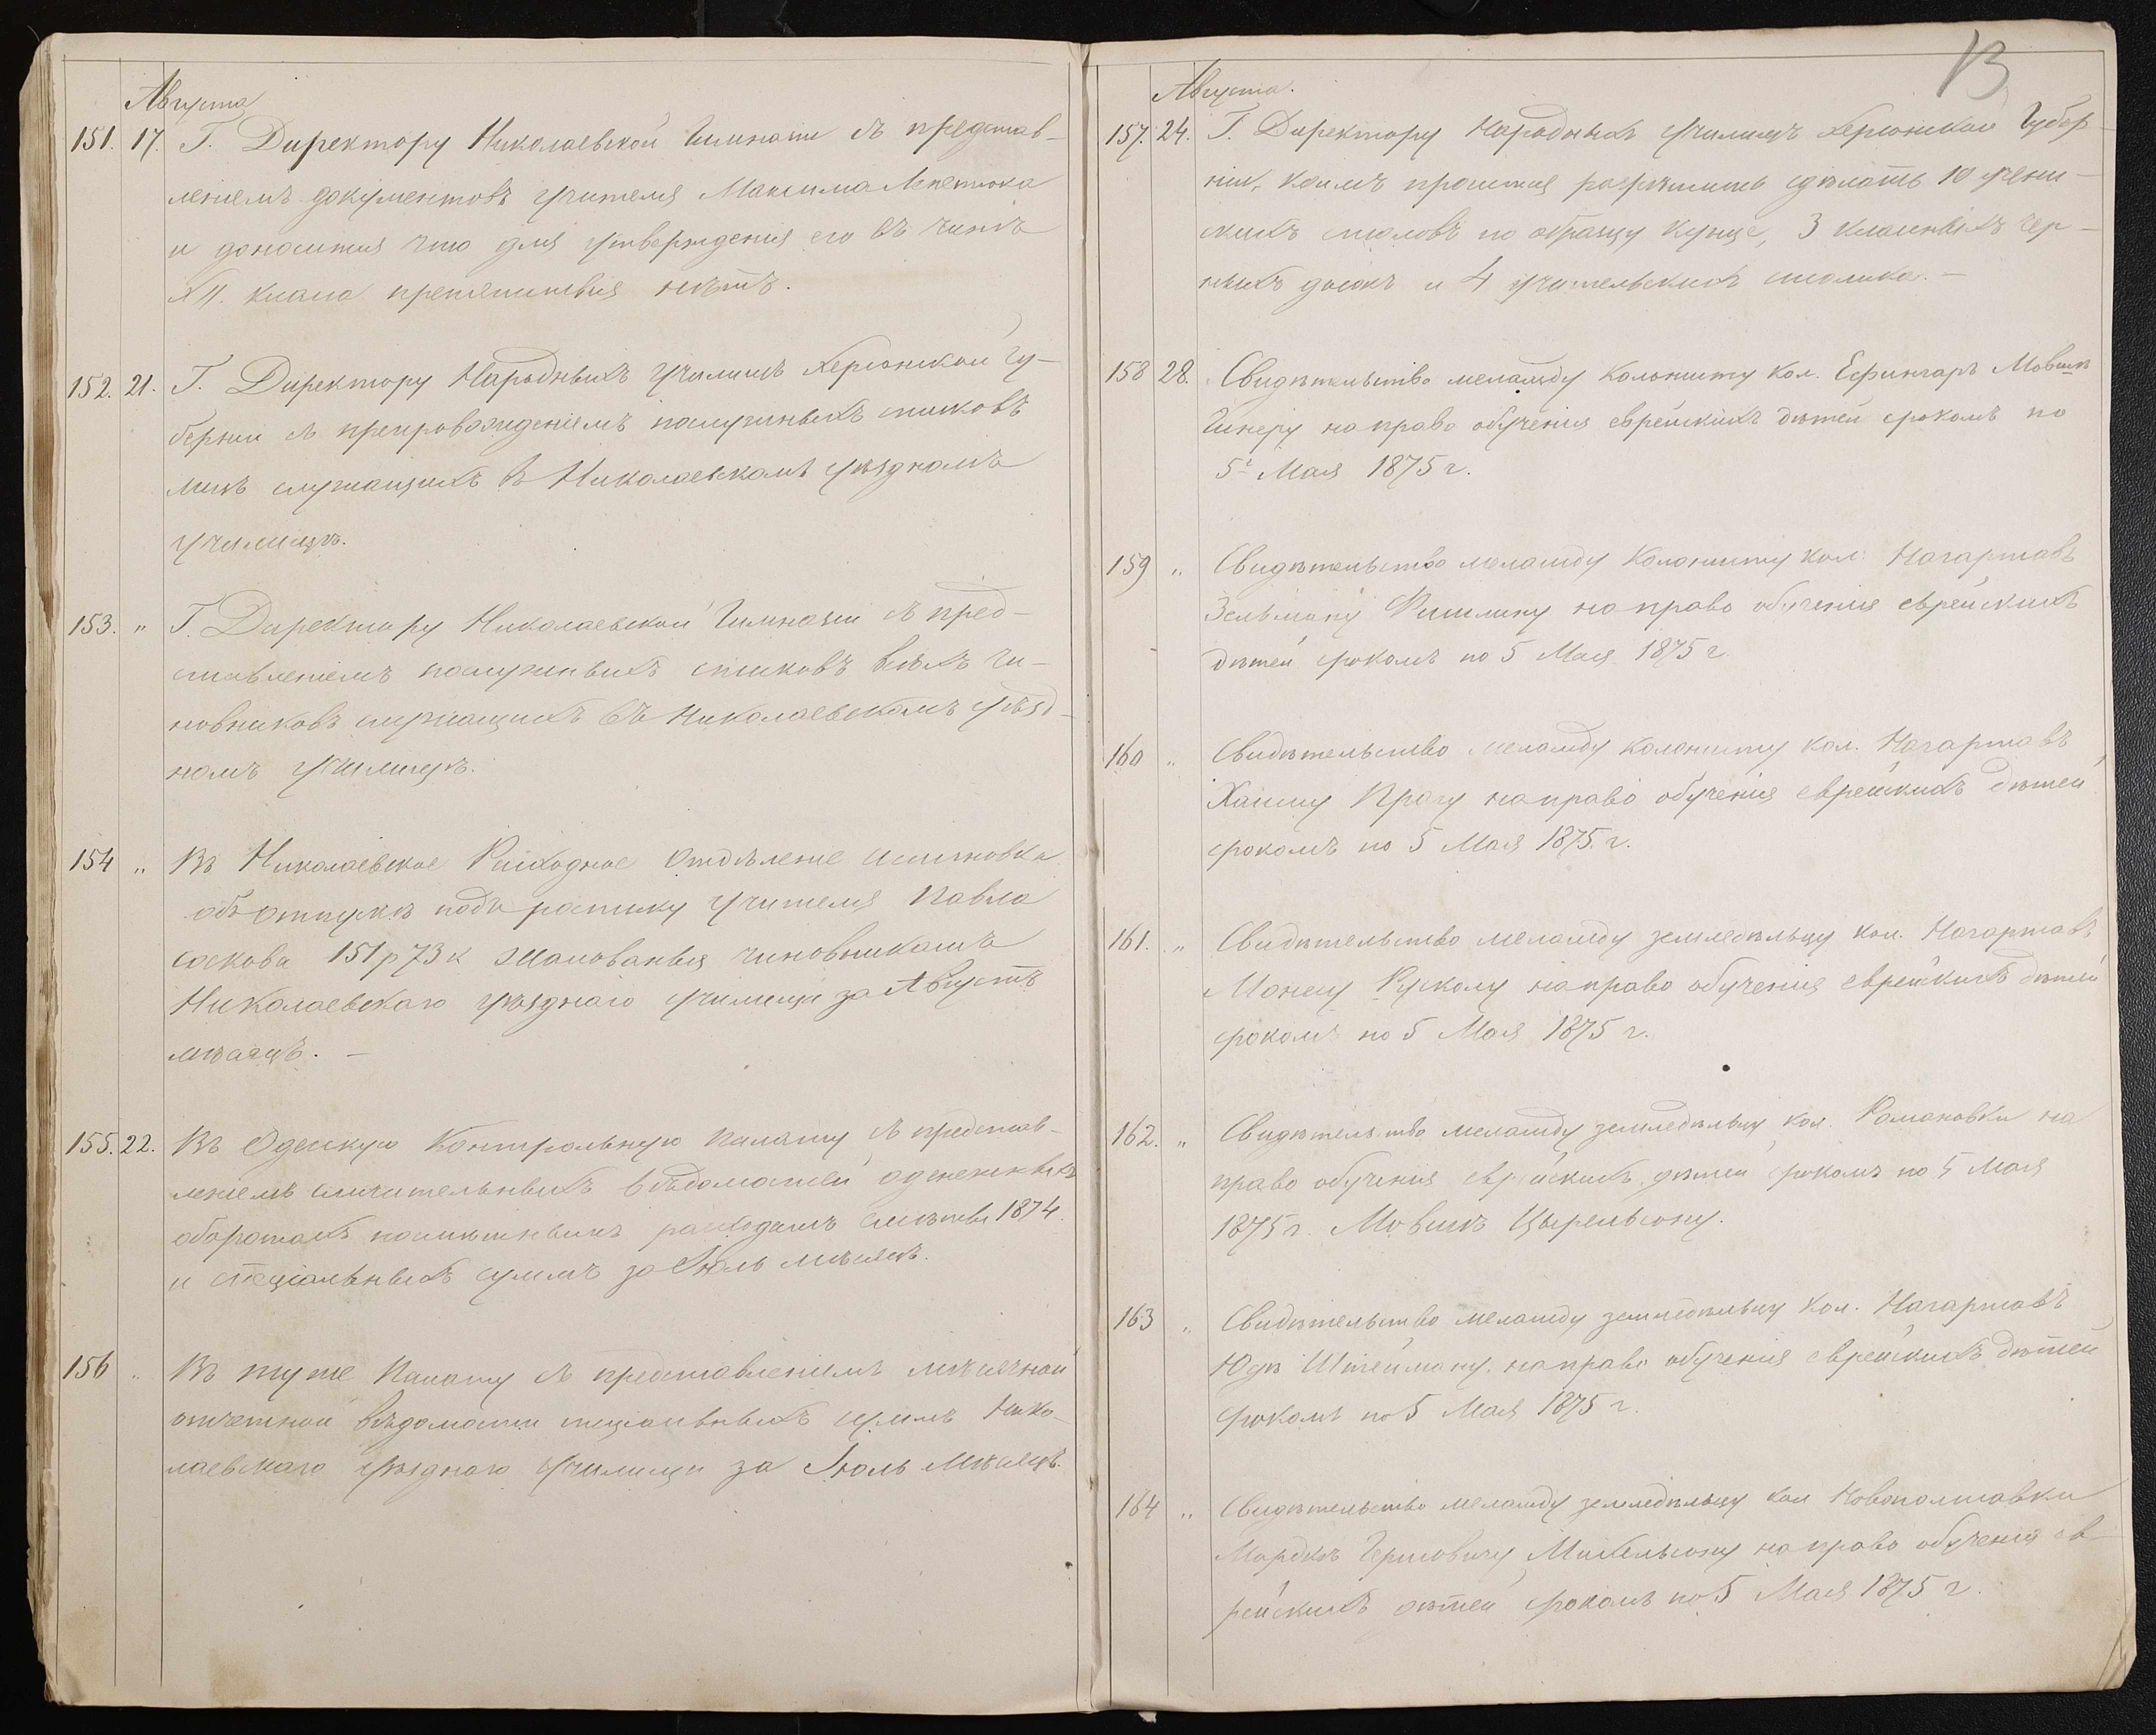 Августа
151. 17. Г. Директору Николаевской Гимназіи съ представ-
леніемъ документовъ учителя Максима
и доносится что для утвержденія его въ чинѣ
XII. класса препятствія нѣтъ.
152. 21. Г. Директору Народныхъ Училищъ Херсонской Гу-
берніи съ препровожденіемъ послужныхъ списковъ
лицъ служащихъ въ Николаевскомъ Уѣздномъ
Училищѣ.
153. " Г. Директору Николаевской Гимназіи съ пред-
ставленіемъ послужныхъ списковъ всѣхъ чи-
новниковъ служащихъ въ Николаевскомъ Уѣзд-
номъ Училищѣ.
154 " Въ Николаевское Расходное Отдѣленіе ассигновка
объ отпускѣ подъ росписку Учителя Павла
Соскова 151 р 73 к жалованья чиновникамъ
Николаевскаго Уѣзднаго Училища за Августъ
мѣсяцъ. —
155. 22. Въ Одесскую Контрольную Палату съ представ-
леніемъ сличительныхъ вѣдомостей о денежныхъ
оборотахъ по смѣтнымъ расходамъ 1874
и спеціальныхъ суммъ за Іюль мѣсяцъ.
156 " Въ ту же Палату съ представленіемъ мѣсячной
отчетной вѣдомости спеціальныхъ суммъ Нико-
лаевскаго Уѣзднаго Училища за Іюль мѣсяцъ.
13
Августа.
157. 24. Г. Директору Народныхъ Училищъ Херсонской Губер-
ніи, коимъ просится разрѣшить сдѣлать 10 учени-
ческихъ столовъ по образцу Кунце, 3 классныхъ чер-
ныхъ досокъ и 4 учительскихъ столика. —
158 28. Свидѣтельство меламду колонисту кол. Ефингаръ Мовшѣ
Гинеру на право обученія еврейскихъ дѣтей срокомъ по
5е Мая 1875 г.
159 " Свидѣтельство меламду колонисту кол. Нагартавъ
Зельману Фишлину на право обученія еврейскихъ
дѣтей срокомъ по 5 Мая 1875 г
160 " Свидѣтельство меламду колонисту кол. Нагартавъ
Хаиму Прагу на право обученія еврейскихъ дѣтей
срокомъ по 5 Мая 1875. г.
161. " Свидѣтельство меламду земледѣльцу кол. Нагартавъ
Монесу Русколу на право обученія еврейскихъ дѣтей
срокомъ по 5 Мая 1875 г.
162. " Свидѣтельство меламду земледѣльцу кол. Романовки на
право обученія еврейскихъ дѣтей срокомъ по 5 Мая
1875 г. Мовшѣ Цырельсону.
163 " Свидѣтельство меламду земледѣльцу кол. Нагартавъ
Юдѣ Штейману. на право обученія еврейскихъ дѣтей
срокомъ по 5 Мая 1875 г.
164 " Свидѣтельство меламду земледѣльцу кол Новополтавки
Мордкѣ Гершовичу Михельсону на право обученія ев
рейскихъ дѣтей срокомъ по 5 Мая 1875 г.